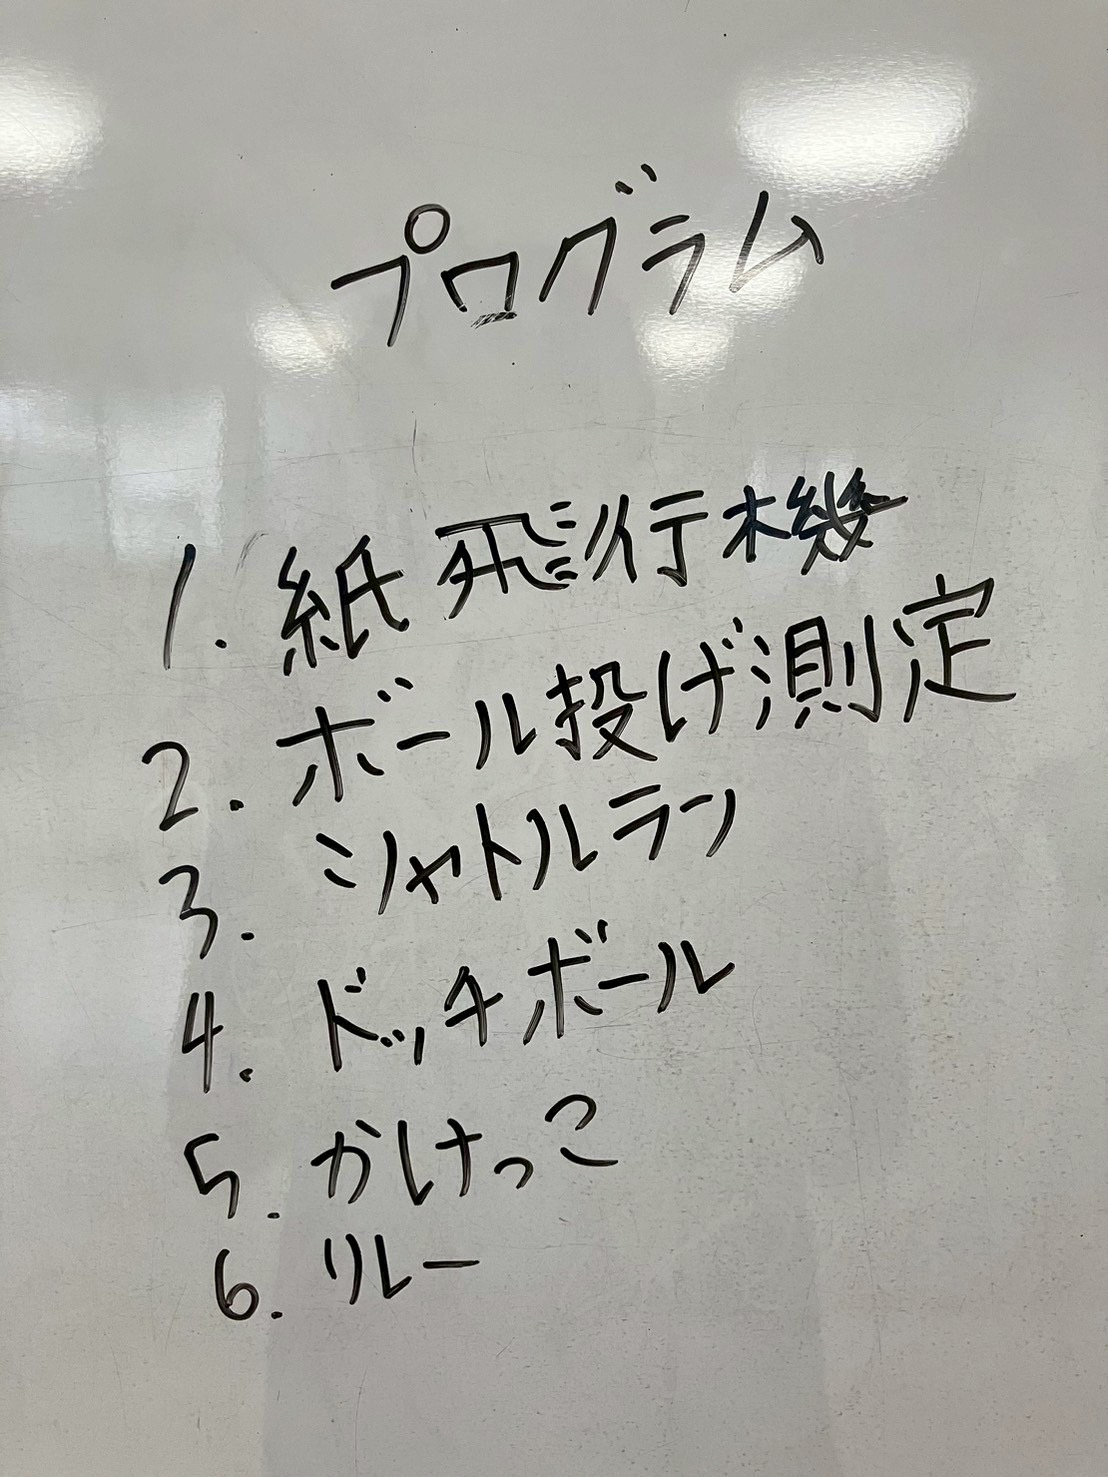 プログラム
1. 紙飛行機
2. ボール投げ測定
3. シャトルラン
4. ドッチボール
5. かけっこ
6. リレー